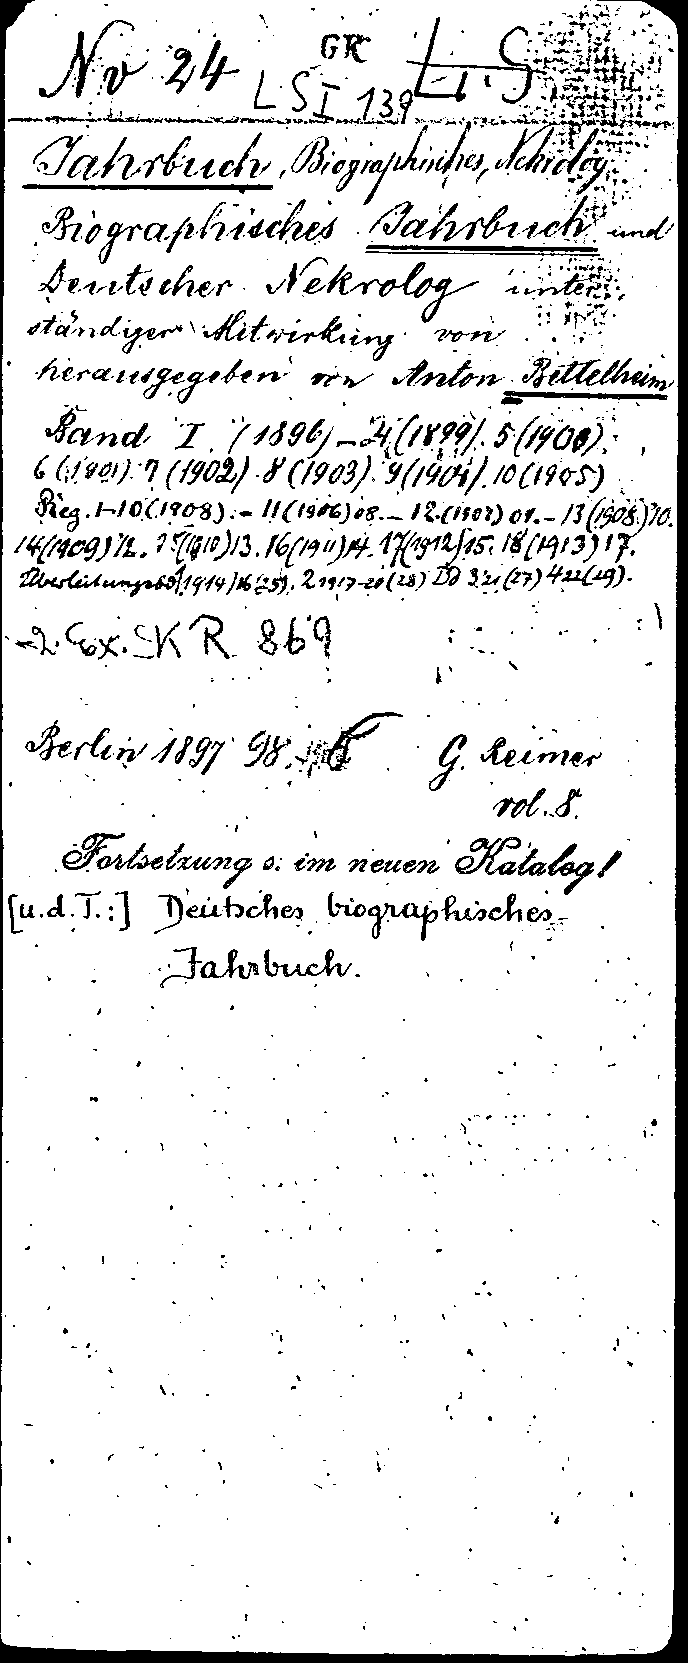 Nv 24 GK L.S.
LS I 139
Jahrbuch, Biographisches, Nekrolog
Biographisches Jahrbuch und
Deutscher Nekrolog unter
ständiger Mitwirkung von
herausgegeben von Anton Bettelheim
Band I. (1896) - 4 (1899). 5 (1900).
6 (1901). 7 (1902). 8 (1903). 9 (1904). 10 (1905)
Reg. 1-10 (1908). - 11 (1906) 08. - 12. (1907) 09. - 13 (1908) 10.
14 (1909) 12. 15 (1910) 13. 16 (1911) 14. 17 (1912) 15. 18 (1913) 17.
Überleitungsbd 1 (1914) 16 (25). 2 1917-20 (28) Bd 3 21 (27) 4 22 (29).
2. Ex. SK R 869
Berlin 1897 98. G. Reimer
vol. 8.
Fortsetzung s. im neuen Katalog!
[u.d.T.:] Deutsches biographisches
Jahrbuch.